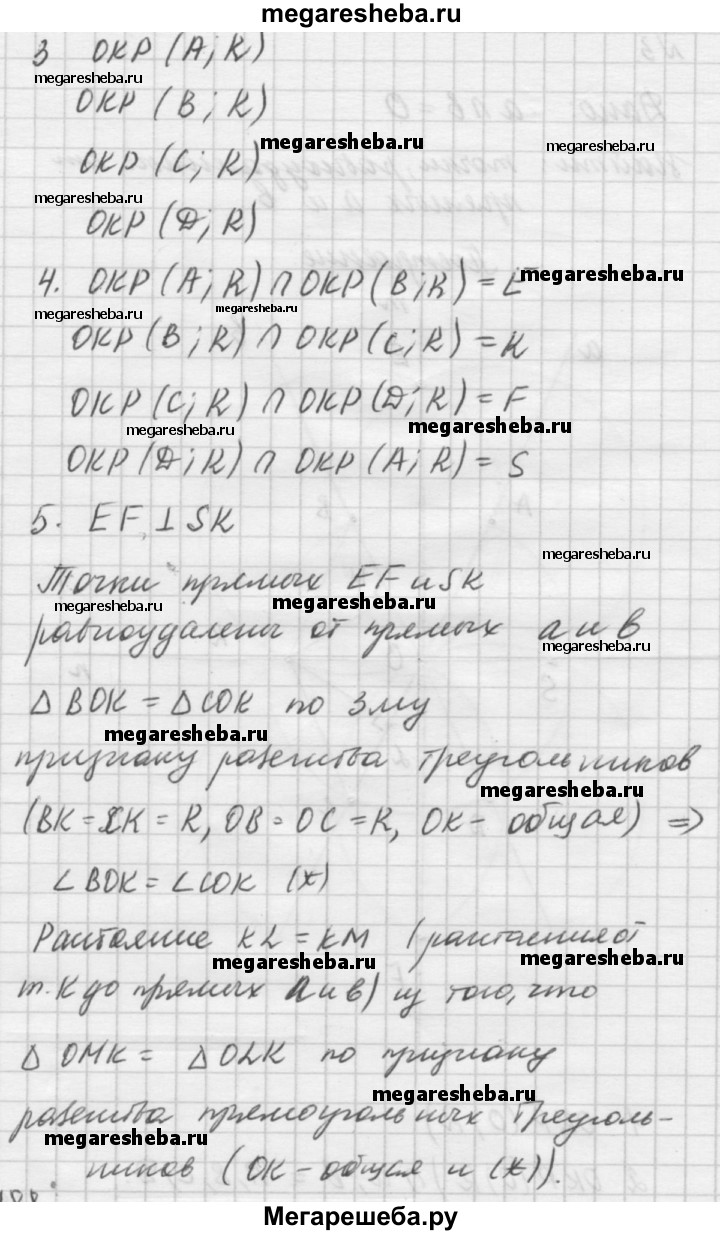 megaresheba.ru
3 ОКР (A; R)
megaresheba.ru
ОКР (B; R)
megaresheba.ru
ОКР (C; R)
megaresheba.ru
ОКР (D; R)
4. ОКР (A; R) ∩ ОКР (B; R) = E
megaresheba.ru
megaresheba.ru
megaresheba.ru
ОКР (B; R) ∩ ОКР (C; R) = K
ОКР (C; R) ∩ ОКР (D; R) = F
megaresheba.ru
megaresheba.ru
ОКР (D; R) ∩ ОКР (A; R) = S
5. EF ⊥ SK
megaresheba.ru
Точки прямых EF и SK
megaresheba.ru
megaresheba.ru
равноудалены от прямых a и в
△ BOK = △ COK по 3му
megaresheba.ru
признаку равенства треугольников
megaresheba.ru
(BK = CK = R, OB = OC = R, OK - общая) ⇒
∠ BOK = ∠ COK (*)
Расстояние KL = KM (расстояния от
megaresheba.ru
megaresheba.ru
т. K до прямых a и в) из того, что
△ OMK = △ OLK по признаку
megaresheba.ru
равенства прямоугольных треуголь-
megaresheba.ru
ников (OK - общая и (*)).
Мегарешеба.ру